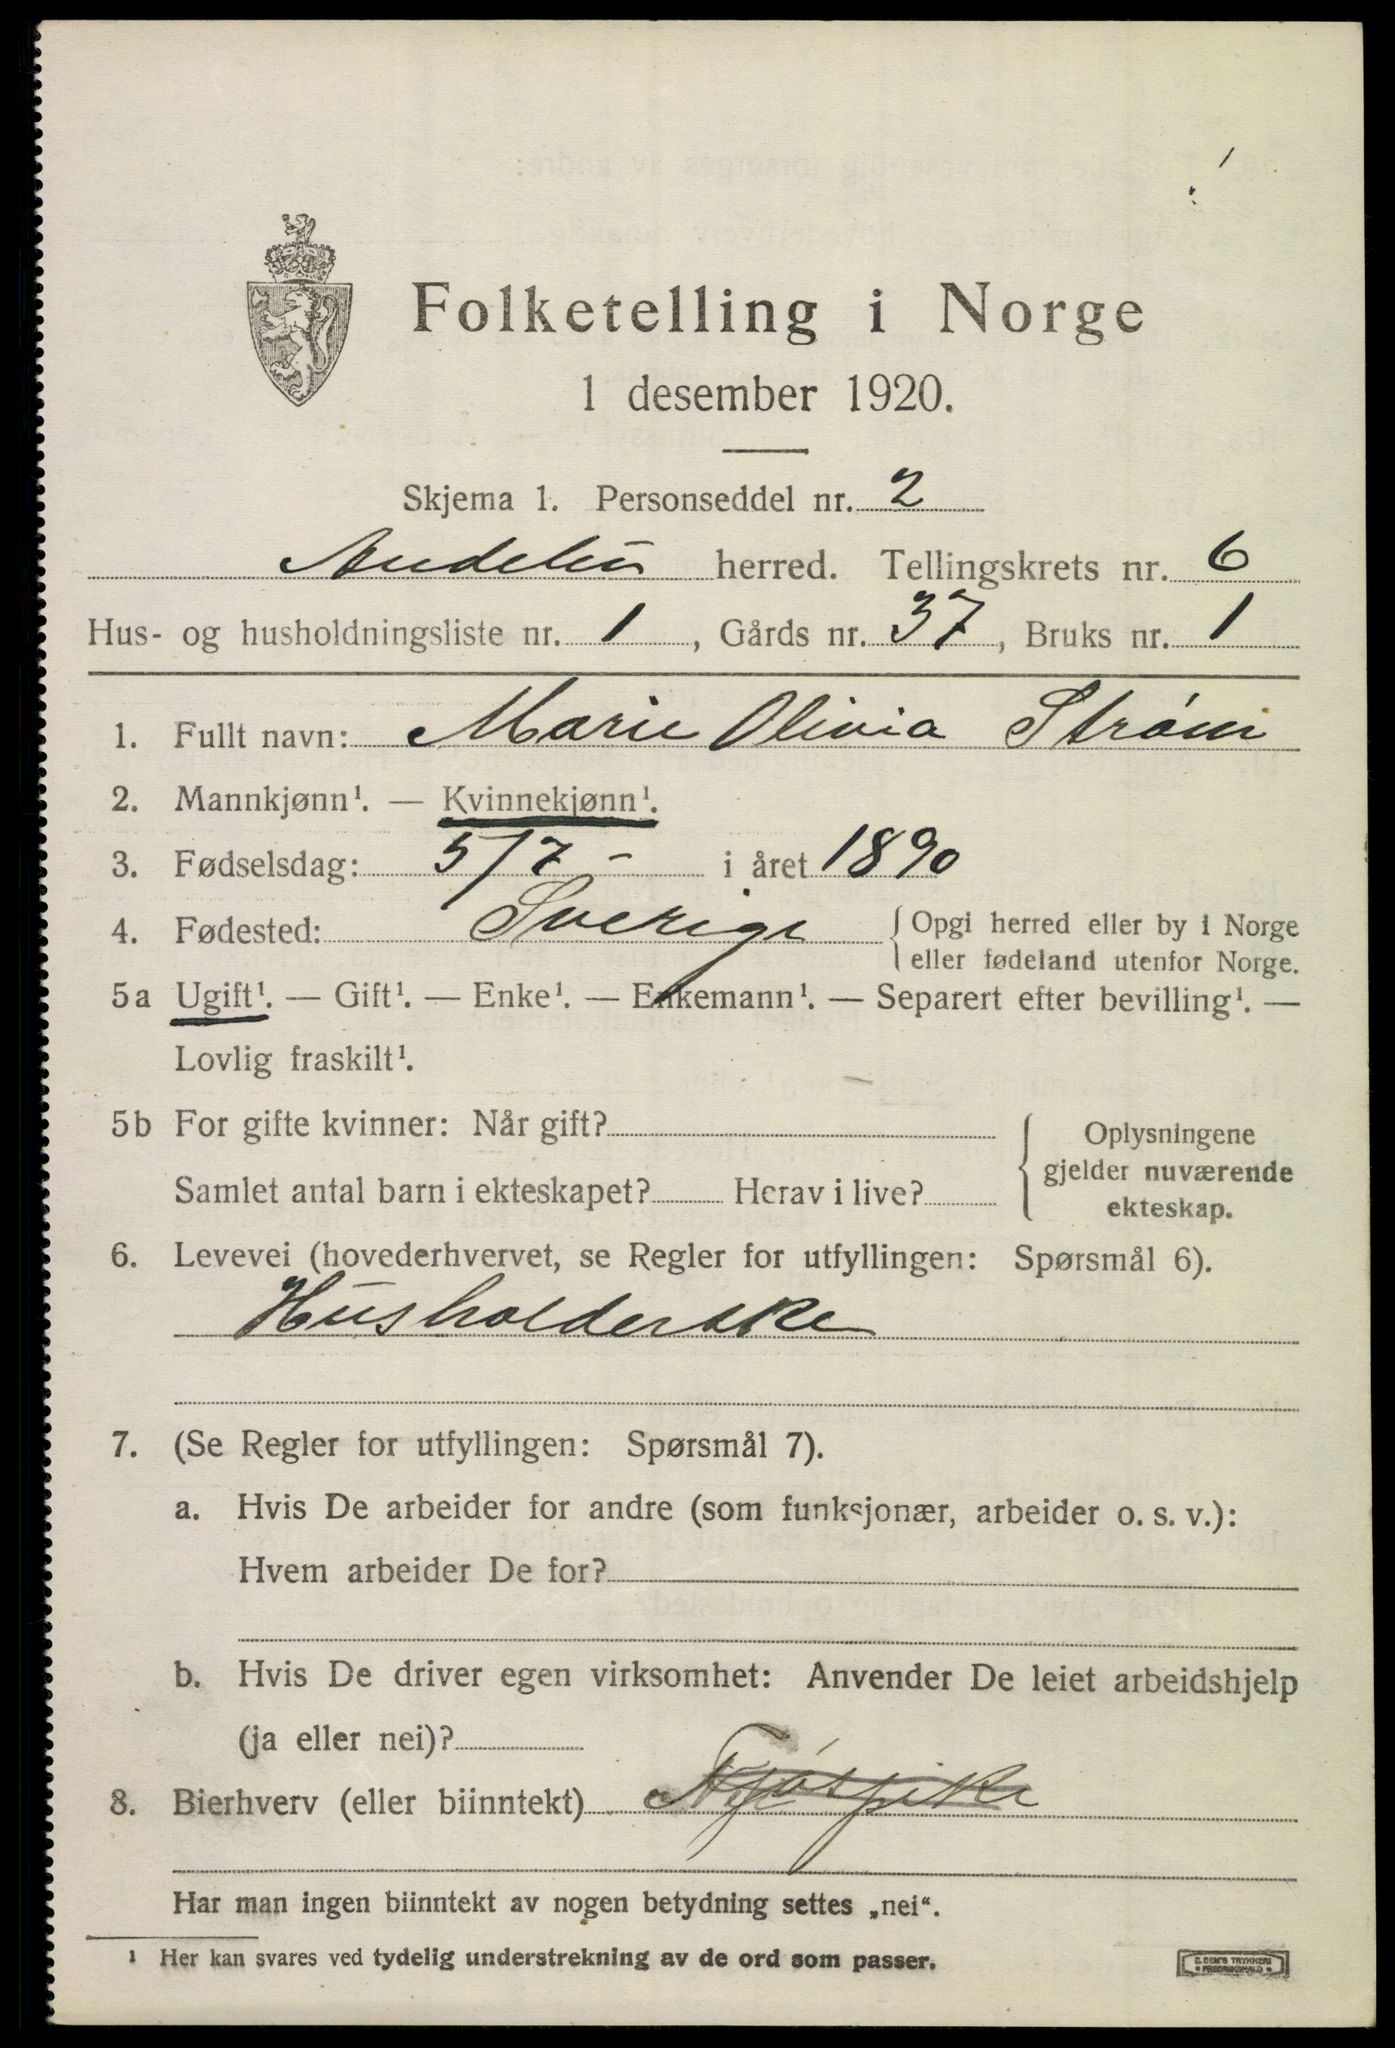 Folketelling i Norge
1 desember 1920.
Skjema 1. Personseddel nr. 2
Andebu herred. Tellingskrets nr. 6
Hus- og husholdningsliste nr. 1, Gårds nr. 37, Bruks nr. 1
1. Fullt navn: Marie Olivia Strøm
2. Mannkjønn¹. — Kvinnekjønn¹.
3. Fødselsdag: 5/7 - i året 1890
4. Fødested: Sverige { Opgi herred eller by i Norge
eller fødeland utenfor Norge.
5a Ugift¹. — Gift¹. — Enke¹. — Enkemann¹. — Separert efter bevilling¹. —
Lovlig fraskilt¹.
5b For gifte kvinner: Når gift?
Samlet antal barn i ekteskapet? Herav i live?
{ Oplysningene
gjelder nuværende
ekteskap.
6. Levevei (hovederhvervet, se Regler for utfyllingen: Spørsmål 6).
Husholderske
7. (Se Regler for utfyllingen: Spørsmål 7).
a. Hvis De arbeider for andre (som funksjonær, arbeider o. s. v.):
Hvem arbeider De for?
b. Hvis De driver egen virksomhet: Anvender De leiet arbeidshjelp
(ja eller nei)?
8. Bierhverv (eller biinntekt) Fjøspike
Har man ingen biinntekt av nogen betydning settes „nei“.
¹ Her kan svares ved tydelig understrekning av de ord som passer.
E. SEM'S TRYKKERI
• FREDRIKSHALD •